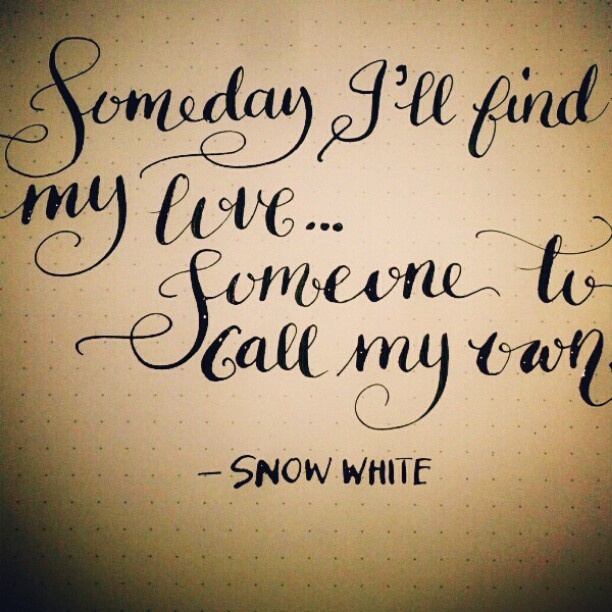 Someday I'll find
my love...
Someone to
call my own.
- SNOW WHITE